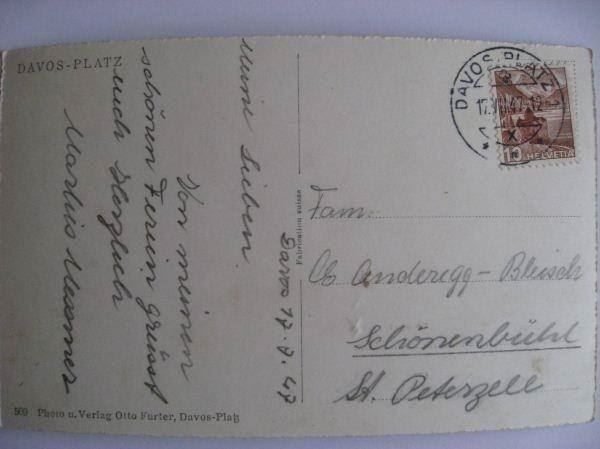 DAVOS-PLATZ
Meine Lieben
Von meinen
schönen Ferien grüsst
euch Herzlich
Davos 17.7.47
Fabrication suisse
DAVOS-PLATZ
10 HELVETIA
Fam.
Anderegg-Bleisch
Schönenbühl
St. Peterzell
509 Photo u. Verlag Otto Furter, Davos-Platz